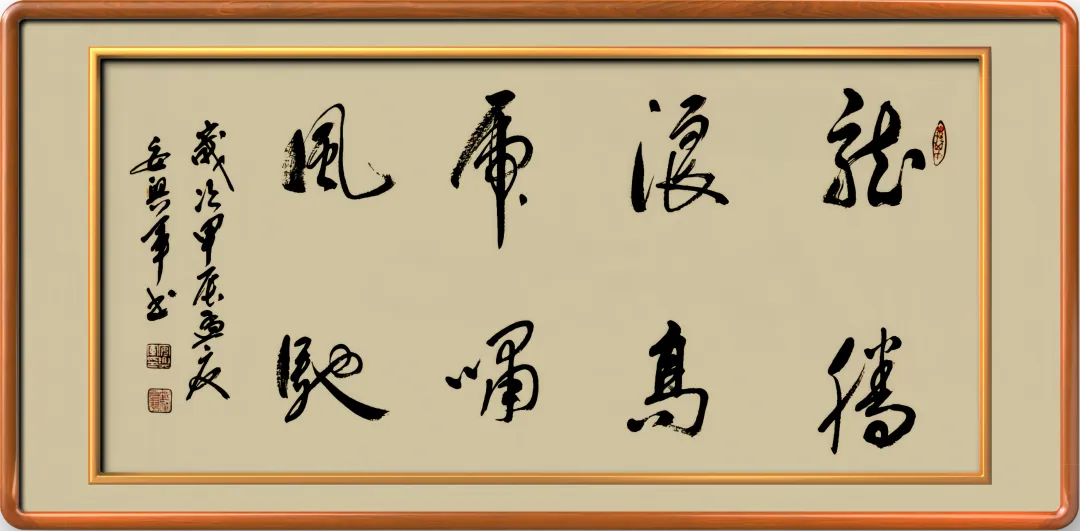 龍騰
浪高
虎嘯
風馳
歲次甲辰孟夏
岳興軍书